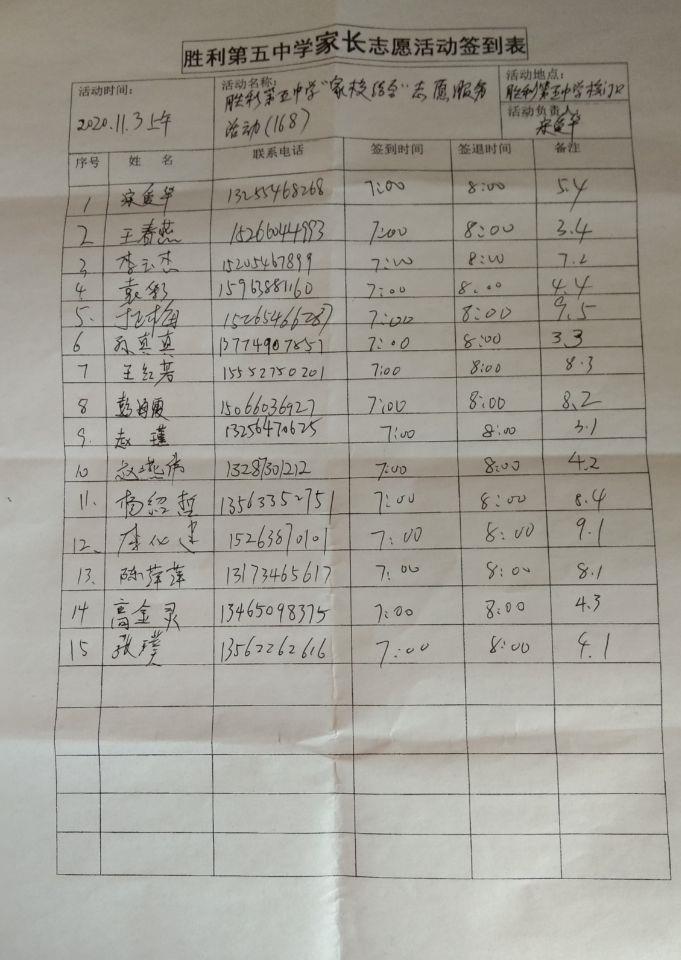 胜利第五中学家长志愿活动签到表
活动时间： 活动名称： 活动地点：
2020.11.3上午 胜利第五中学"家校结合"志愿服务 胜利第五中学校门口
活动(168) 活动负责人：
序号 姓名 联系电话 签到时间 签退时间 备注
1 13255468268 7:00 8:00 5.4
2 王春燕 15266044993 7:00 8:00 3.4
3 李玉杰 15205467899 7:00 8:00 7.2
4 袁彩 15963881160 7:00 8:00 4.4
5. 15265466287 7:00 8:00 9.5
6 孙真真 13774907857 7:00 8:00 3.3
7 王红芳 15552750201 7:00 8:00 8.3
8 彭海霞 15066036927 7:00 8:00 8.2
9. 赵瑾 13256470625 7:00 8:00 3.1
10 赵燕 13287301212 7:00 8:00 4.2
11. 杨绍哲 13563352751 7:00 8:00 8.4
12、 李 15263870101 7:00 8:00 9.1
13. 陈萍萍 13173465617 7:00 8:00 8.1
14 高金灵 13465098375 7:00 8:00 4.3
15 张璞 13562262616 7:00 8:00 4.1